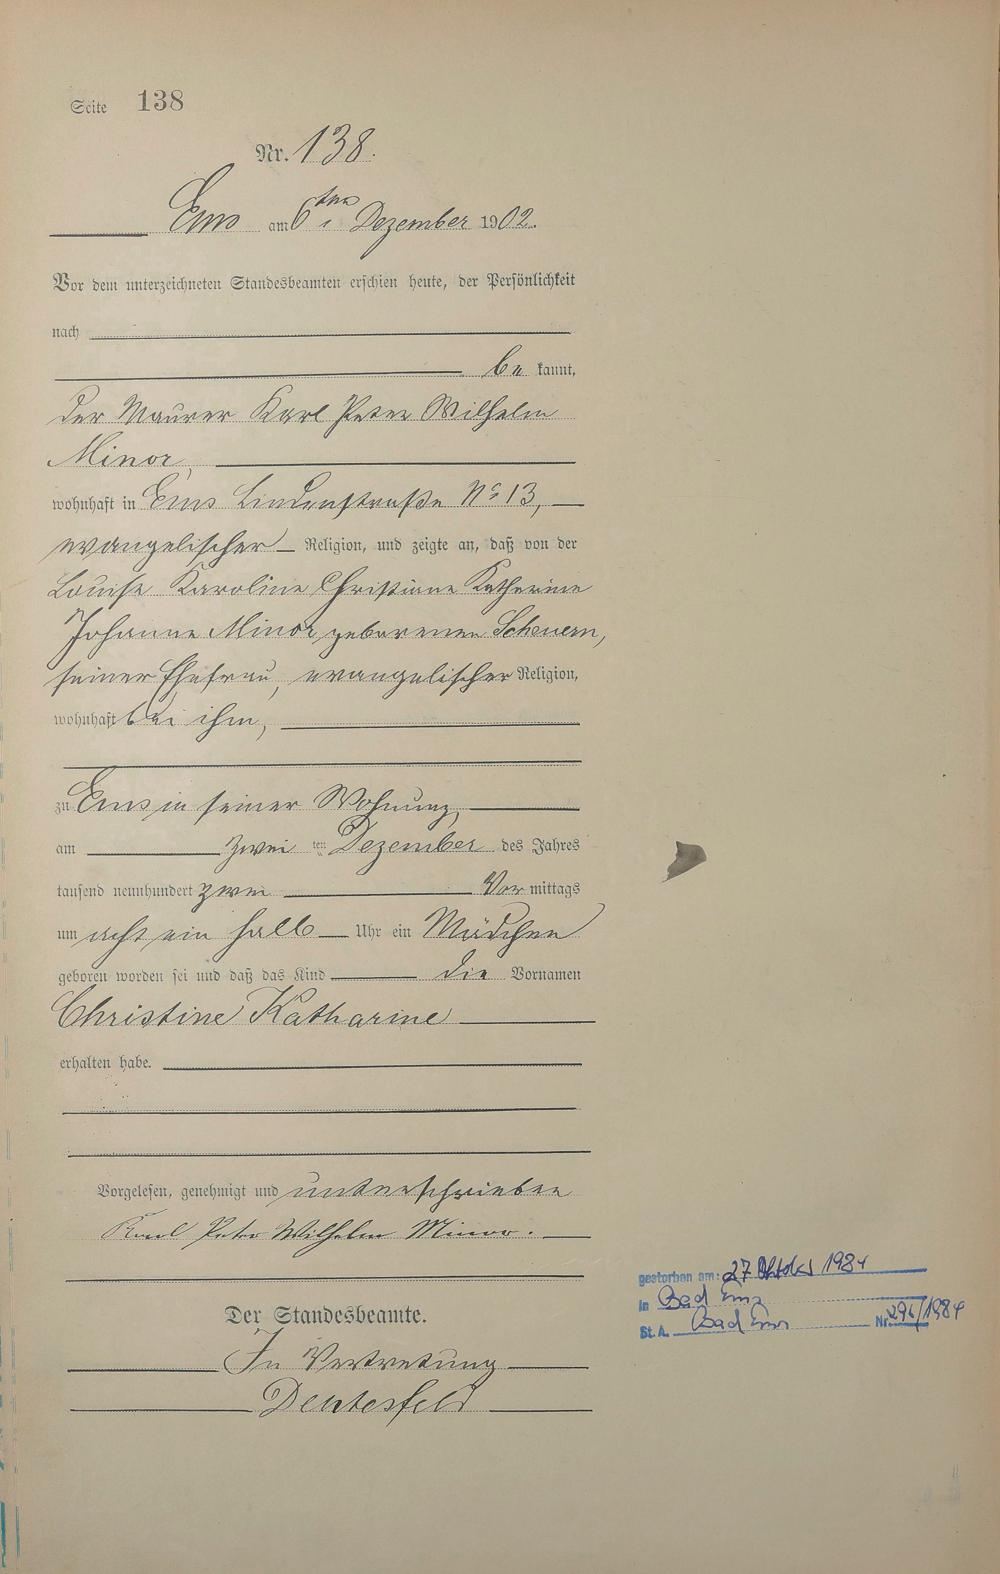 Seite 138
Nr. 138.
Ems am 6ten Dezember 1902.
Vor dem unterzeichneten Standesbeamten erschien heute, der Persönlichkeit
nach
be kannt,
der Maurer Karl Peter Wilhelm
Minor,
wohnhaft in Ems Lindenstraße No 13,
evangelischer Religion, und zeigte an, daß von der
Louise Karoline Christiane Katherine
Johanne Minor geborenen Scheuern,
seiner Ehefrau, evangelischer Religion,
wohnhaft bei ihm,
zu Ems in seiner Wohnung,
am zwei ten Dezember des Jahres
tausend neunhundert zwei Vor mittags
um acht ein halb Uhr ein Mädchen
geboren worden sei und daß das Kind die Vornamen
Christine Katharine
erhalten habe.
Vorgelesen, genehmigt und unterschrieben
Karl Peter Wilhelm Minor.
Der Standesbeamte.
In Vertretung
gestorben am: 27 Oktober 1984
in Bad Ems
St. A. Bad Ems Nr. /1984